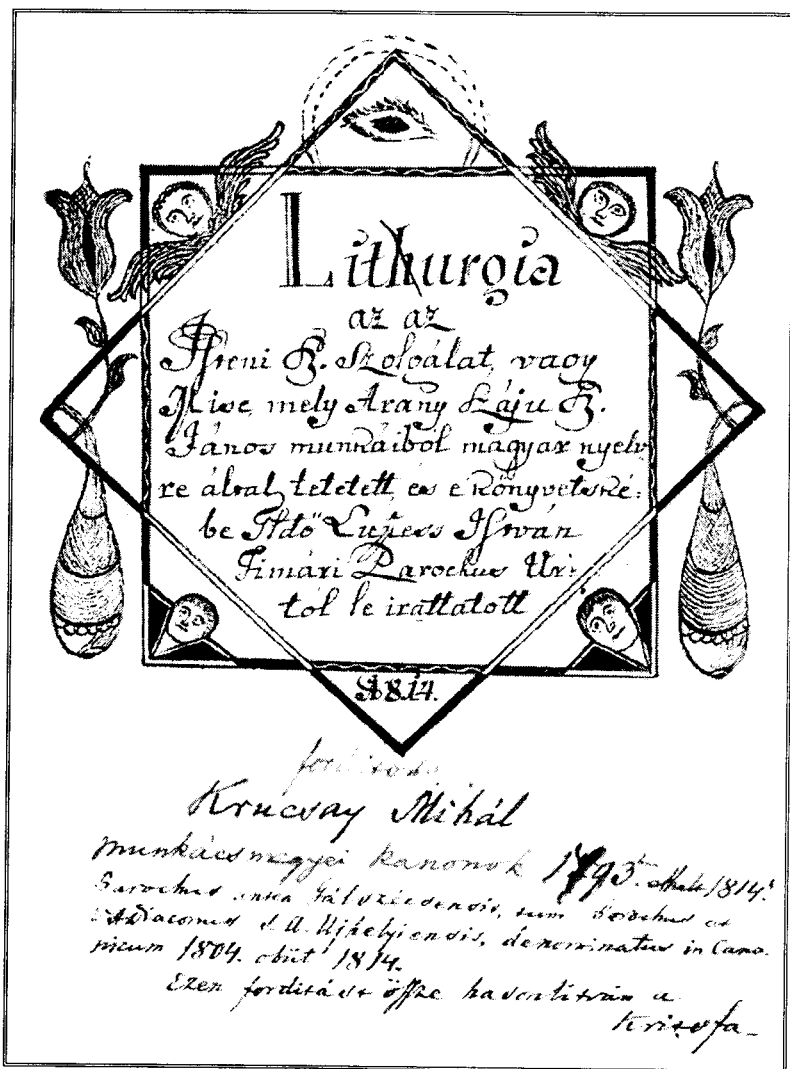 Lithurgia
az az
Isteni Sz. Szolgálat, vagy
Mise, mely Arany Száju Sz.
János munkáiból magyar nyelv
re által tetetett, és e könyvetské:
be Fő Tdő Lupess István
Timári Parochus Úr:
tól le irattatott
1814.
forditoda
Krucsay Mihál
munkácsmegyei kanonok 1793. 1814.
Parochus antea Gálszécsensis, tum Parochus et
V.ADiaconus S.A. Ujhelyiensis, denominatus in Cano.
nicum 1804. obiit 1814.
Ezen forditást össze hasonlitván a